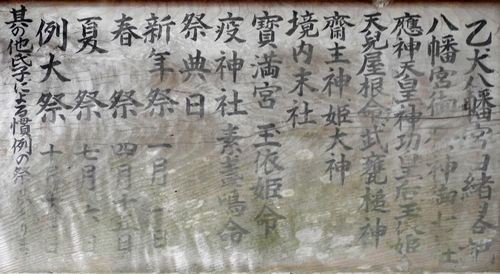 乙犬八幡宮由緒
八幡宮御 神御七社
應神天皇神功皇后玉依姫命
天兒屋根命武甕槌神
齋主神姫大神
境内末社
寶満宮 玉依姫命
疫神社 素盞嗚命
祭典日
新年祭 一月一日
春祭 四月十五日
夏祭 七月 日
例大祭 十月 日
其の他氏子による慣例の祭